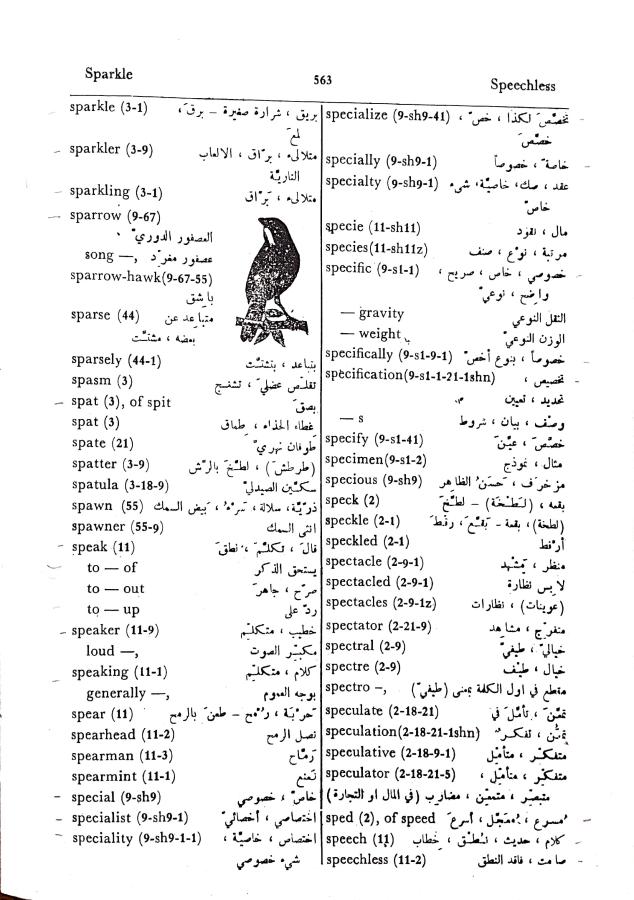 Sparkle
563
Speechless
sparkle (3-1) بريق ، شرارة صغيرة – برقَ ،
لمعَ
sparkler (3-9) متلألىء ، برّاق ، الالعاب
الناريّة
sparkling (3-1) متلألىء ، برّاق
sparrow (9-67)
العصفور الدوريّ
song —, عصفور مغرّد
sparrow-hawk(9-67-55)
باشق
sparse (44) متباعد عن
بعضه ، مشتّت
sparsely (44-1) بتباعد ، بتشتّت
spasm (3) تقلّص عضليّ ، تشنج
spat (3), of spit بصقَ
spat (3) غطاء الحذاء ، طماق
spate (21) طوفان نهريّ
spatter (3-9) (طرطشَ) ، لطّخَ بالرّش
spatula (3-18-9) سكّين الصيدليّ
spawn (55) ذرّيّة، سلالة ، سرء، بَيض السمك
spawner (55-9) انثى السمك
speak (11) قالَ ، تكلّمَ ، نطقَ
to — of يستحق الذكر
to — out صرّح ، جاهرَ
to — up ردّ على
speaker (11-9) خطيب ، متكلّم
loud —, مكبّر الصوت
speaking (11-1) كلام ، متكلّم
generally —, بوجه العموم
spear (11) حَربَة ، رُمح – طعنَ بالرمح
spearhead (11-2) نصل الرمح
spearman (11-3) رمّاح
spearmint (11-1) نعنع
special (9-sh9) خاصّ ، خصوصي
specialist (9-sh9-1) اختصاصي ، أخصائيّ
speciality (9-sh9-1-1) اختصاص ، خاصيّة ،
شيء خصوصي
specialize (9-sh9-41) تخصّصَ لكذا ، خصّ ،
خصّصَ
specially (9-sh9-1) خاصةً ، خصوصاً
specialty (9-sh9-1) عقد ، صك، خاصيّة، شيء
خاصّ
specie (11-sh11) مال ، نقود
species(11-sh11z) مرتبة ، نوع ، صنف
specific (9-s1-1) خصوصي ، خاص ، صريح ،
واضح ، نوعيّ
— gravity الثقل النوعي
— weight الوزن النوعيّ
specifically (9-s1-9-1) خصوصاً ، بنوع أخصّ
specification(9-s1-1-21-1shn) تخصيص ،
تحديد ، تعيين
— s وصف ، بيان ، شروط
specify (9-s1-41) خصّصَ ، عيّنَ
specimen(9-s1-2) مثال ، نموذج
specious (9-sh9) مزخرف ، حَسَنُ الظاهر
speck (2) بقعه ، (لطخة) – لطّخَ
speckle (2-1) (لطخة)، بقعة – بَقّعَ، رقّطَ
speckled (2-1) أرقط
spectacle (2-9-1) منظر ، مَشهد
spectacled (2-9-1) لابس نظارة
spectacles (2-9-1z) (عوينات) ، نظارات
spectator (2-21-9) متفرّج ، مشاهد
spectral (2-9) خياليّ ، طيفيّ
spectre (2-9) خيال ، طيف
spectro –, مقطع في اول الكلمة بمعنى (طيفيّ)
speculate (2-18-21) تمعّنَ ، تأمّل في
speculation(2-18-21-1shn) تمعّن ، تفكّر
speculative (2-18-9-1) متفكّر ، متأمّل
speculator (2-18-21-5) متفكّر ، متأمّل ،
متبصّر ، متمعّن ، مضارب (في المال او التجارة)
sped (2), of speed مُسرع ، مُعَجّل ، أسرعَ
speech (11) كلام ، حديث ، نُطق ، خطاب
speechless (11-2) صامت ، فاقد النطق